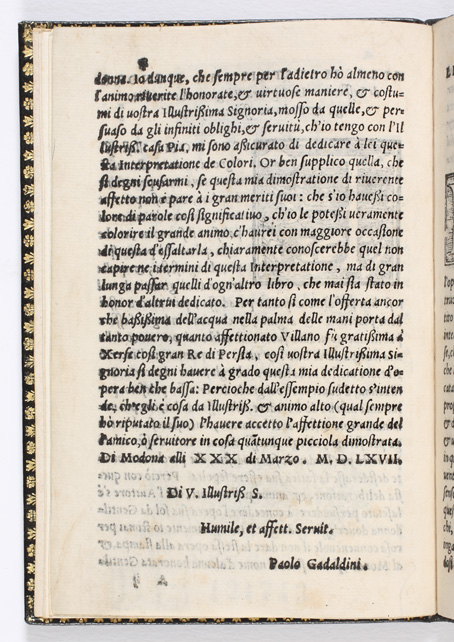 donna. Io dunque, che sempre per l'adietro hò almeno con
l'animo riuerite l'honorate, & uirtuose maniere, & costu-
mi di uostra Illustrißima Signoria, mosso da quelle, & per-
suaso da gli infiniti oblighi, & seruitù, ch'io tengo con l'Il
lustriß. casa Pia, mi sono aßicurato di dedicare à lei que-
sta Interpretatione de Colori. Or ben supplico quella, che
si degni scusarmi, se questa mia dimostratione di riuerente
affetto non è pare à i gran meriti suoi: che s'io hauessi co-
lore di parole cosi significatiuo, ch'io le potessi ueramente
colorire il grande animo, c'haurei con maggiore occasione
di questa d'essaltarla, chiaramente conoscerebbe quel non
capire ne i termini di questa Interpretatione, ma di gran
lunga passar quelli d'ogn'altro libro, che mai sia stato in
honor d'altrui dedicato. Per tanto si come l'offerta ancor
che baßißima dell'acqua nella palma delle mani porta dal
tanto pouero, quanto affettionato Villano fù gratißima à
Xerse cosi gran Re di Persia, così uostra Illustrißima Si-
gnoria si degni hauere à grado questa mia dedicatione d'o-
pera ben che bassa: Percioche dall'essempio sudetto s'inten
de, ch'egli è cosa da Illustriß. & animo alto (qual sempre
hò riputato il suo) l'hauere accetto l'affettione grande del
l'amico, ò seruitore in cosa quātunque picciola dimostrata.
Di Modona alli XXX di Marzo. M. D. LXVII.
Di V. Illustriß S.
Humile, et affett. Seruit.
Paolo Gadaldini.